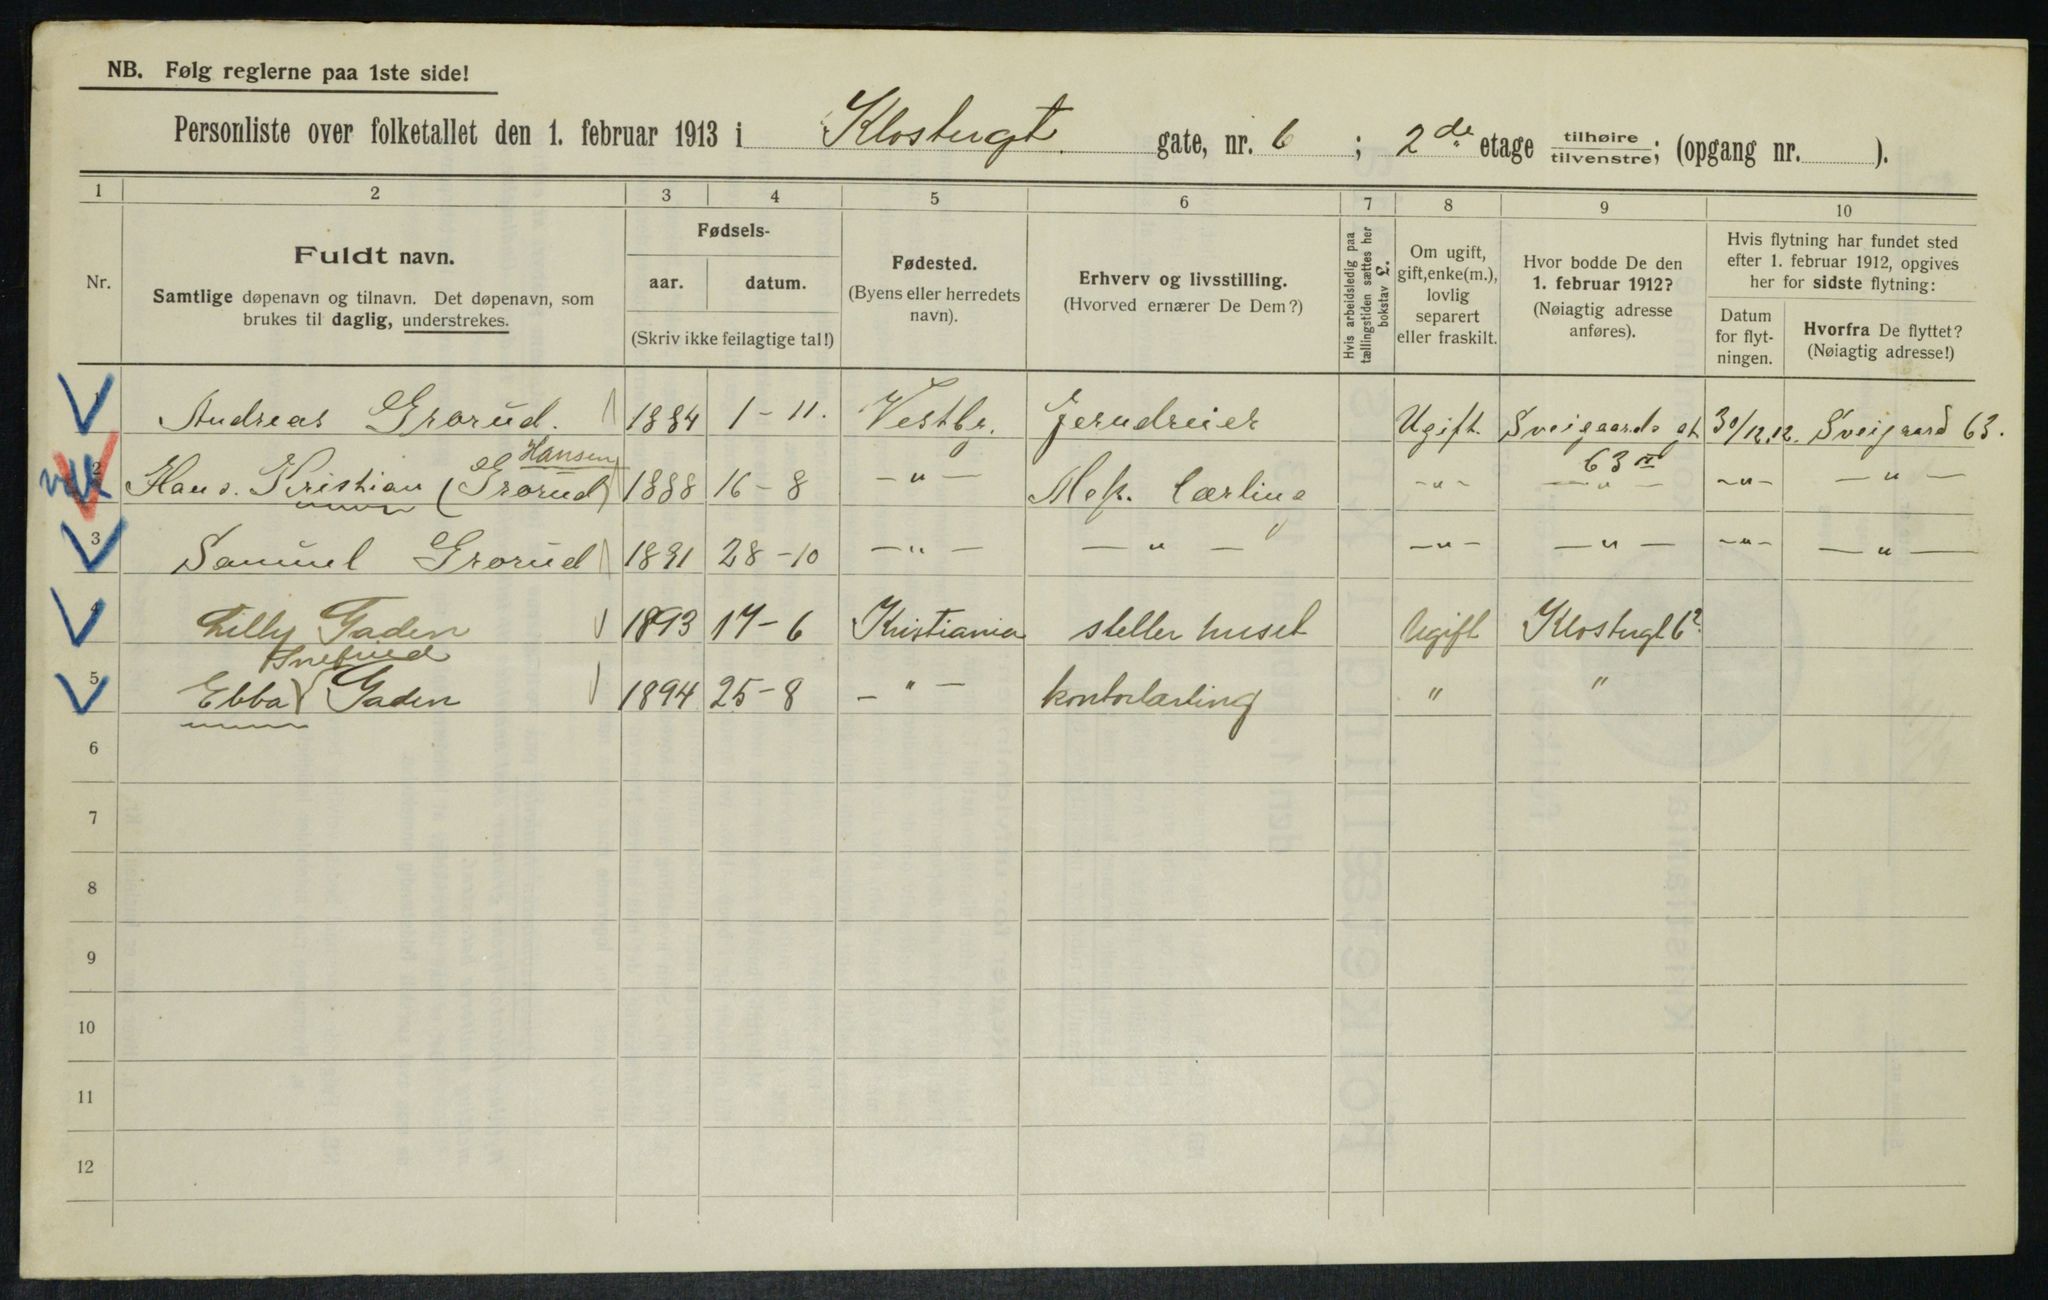 NB. Følg reglerne paa 1ste side!
Personliste over folketallet den 1. februar 1913 i Klostergt. gate, nr. 6 ; 2de etage tilhøire tilvenstre; (opgang nr. ).
1 2 3 4 5 6 7 8 9 10
Nr.
Fuldt navn.
Samtlige døpenavn og tilnavn. Det døpenavn, som
brukes til daglig, understrekes.
Fødsels-
aar. datum.
(Skriv ikke feilagtige tal!)
Fødested.
(Byens eller herredets
navn).
Erhverv og livsstilling.
(Hvorved ernærer De Dem?)
Hvis arbeidsledig paa
tællingstiden sættes her
bokstav £.
Om ugift,
gift, enke(m.),
lovlig
separert
eller fraskilt.
Hvor bodde De den
1. februar 1912?
(Nøiagtig adresse
anføres).
Hvis flytning har fundet sted
efter 1. februar 1912, opgives
her for sidste flytning:
Datum
for flyt-
ningen.
Hvorfra De flyttet?
(Nøiagtig adresse!)
1 Andreas Grorud. 1884 1-11. Vestby. Jerndreier Ugift. Sveigaards gt 30/12.12. Sveigaard 63.
Hansen 63 IV
2 Hans. Kristian (Grorud) 1888 16-8 -"- Mek. Lærling -"- -"- -"- -"-
3 Samuel Grorud 1891 28-10 -"- -"- -"- -"- -"- -"-
4 Lilly Gaden 1893 17-6 Kristiania steller huset Ugift Klostergt 6²
Snefried
5 Ebba Gaden 1894 25-8 -"- kontorlærling " "
6
7
8
9
10
11
12